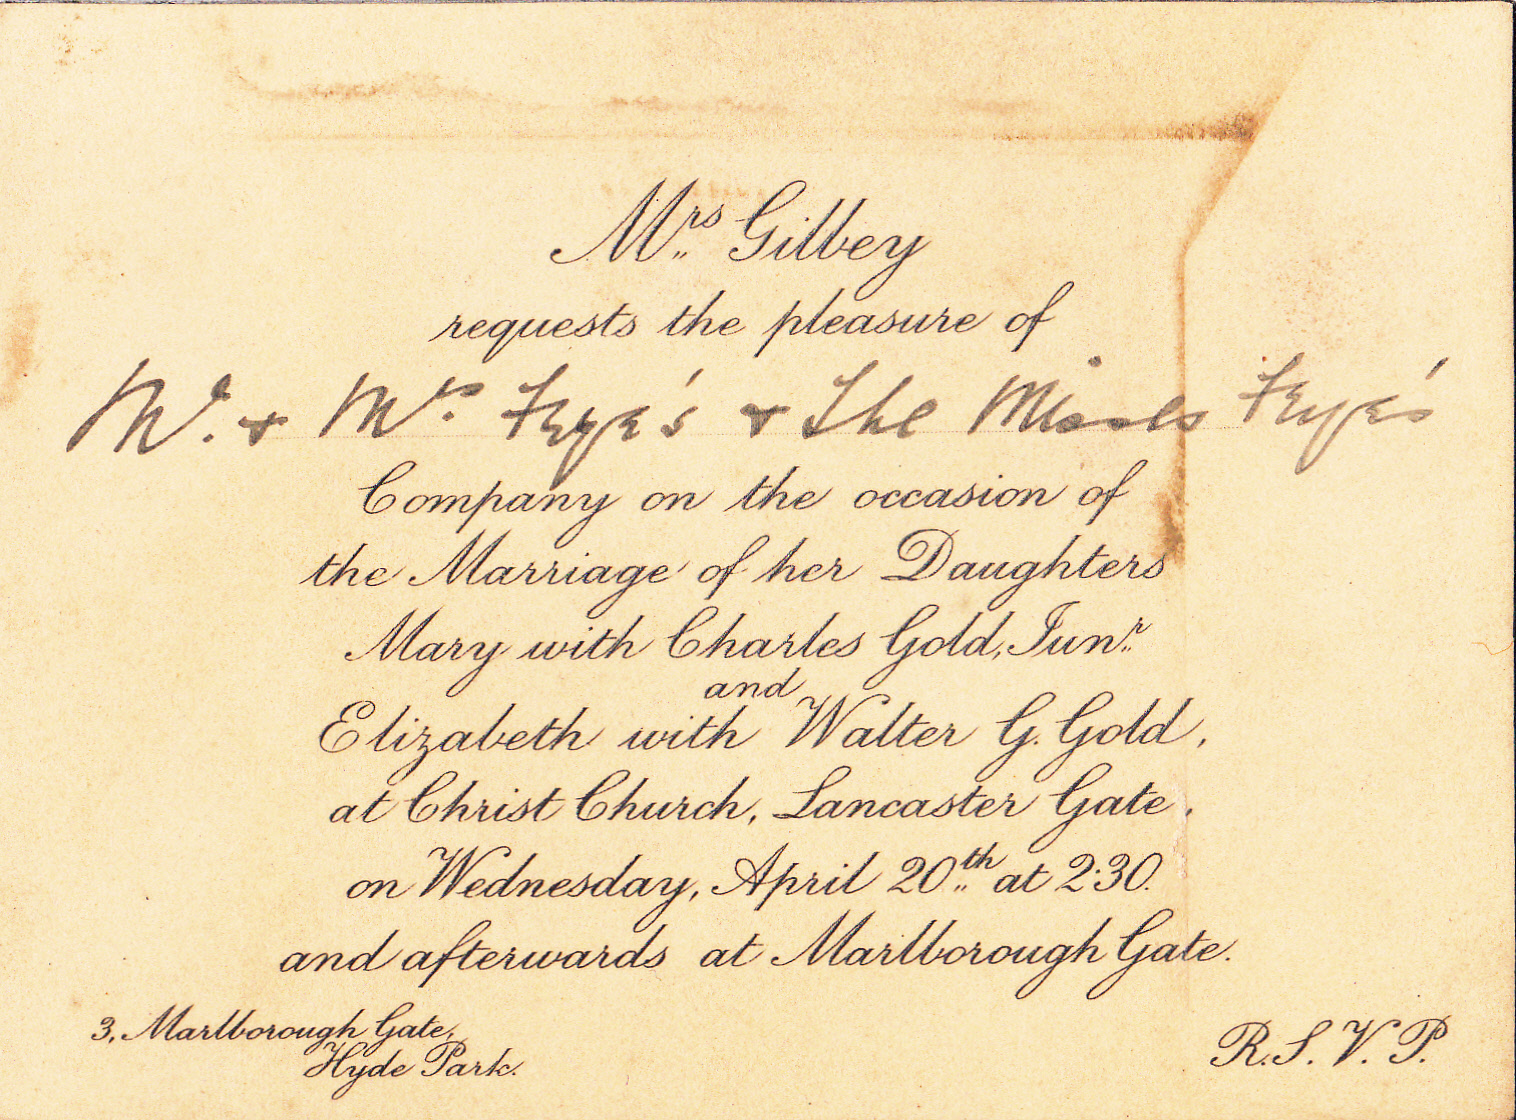 Mrs Gilbey
requests the pleasure of
Mr. & Mrs. Frye's & The Misses Frye's
Company on the occasion of
the Marriage of her Daughters
Mary with Charles Gold, Junr.
and
Elizabeth with Walter G. Gold,
at Christ Church, Lancaster Gate,
on Wednesday, April 20th at 2.30.
and afterwards at Marlborough Gate.
3, Marlborough Gate,
Hyde Park.
R.S.V.P.